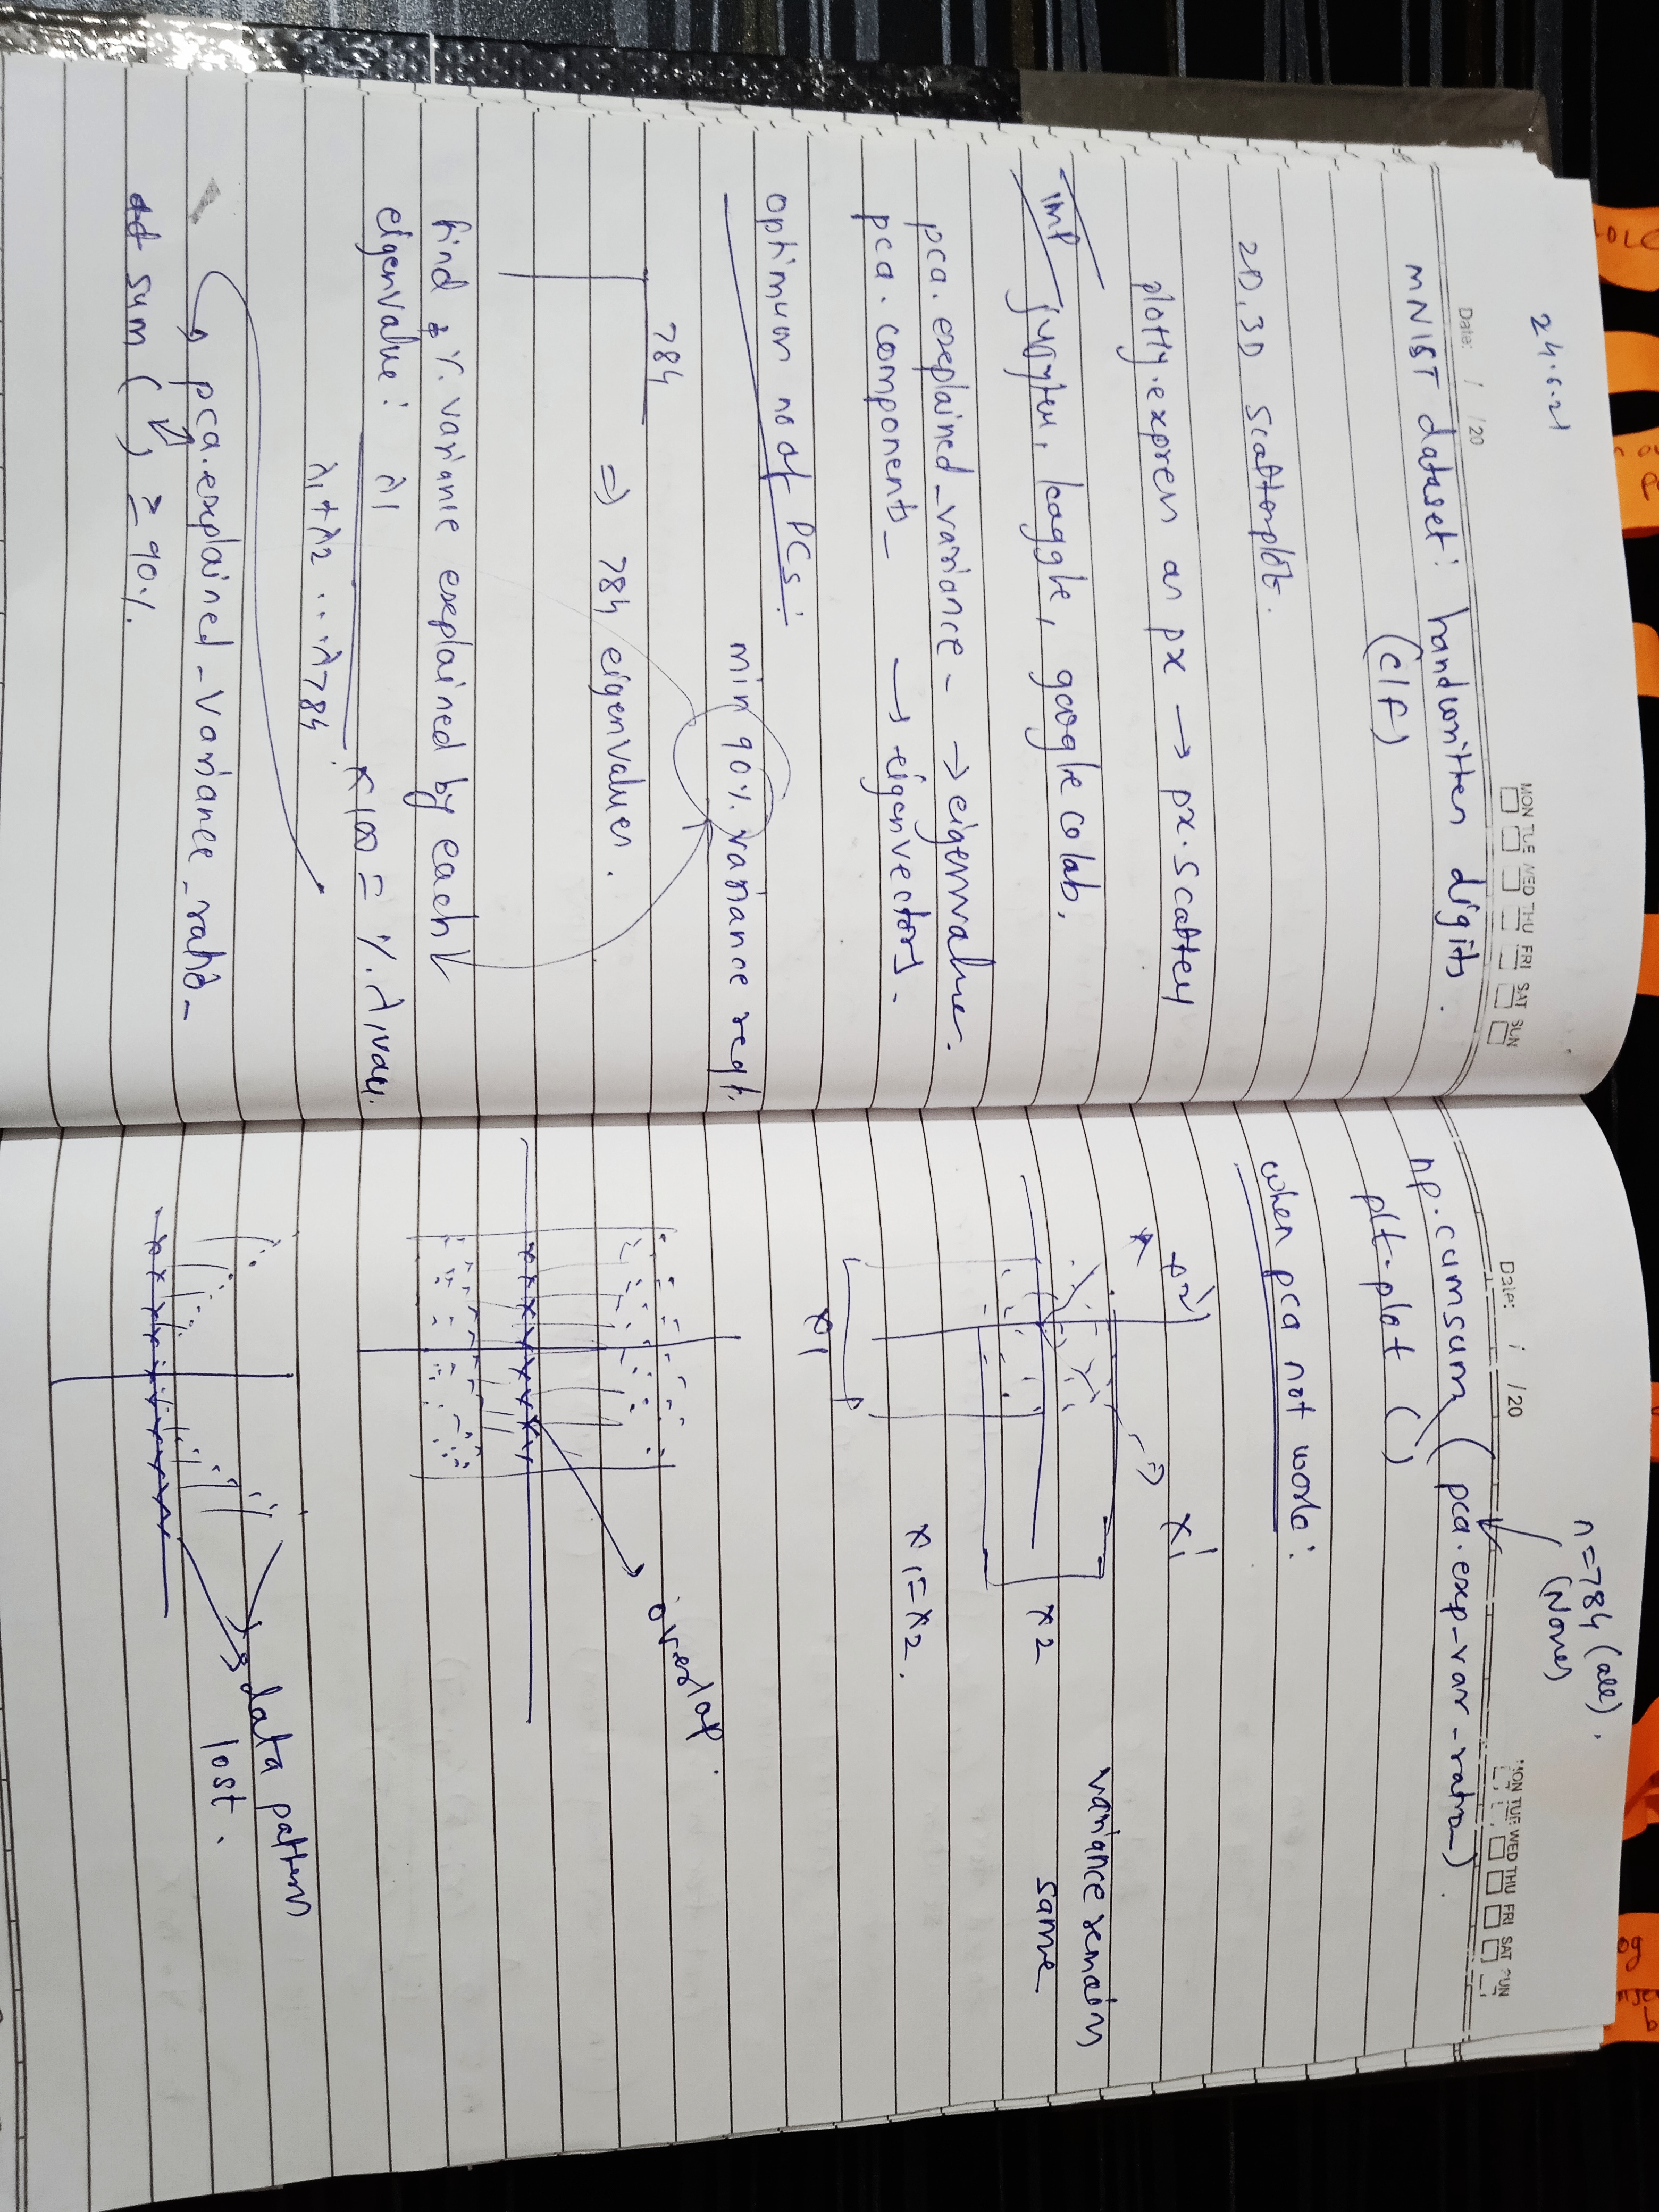 24.6.21
Date: / /20
MON TUE WED THU FRI SAT SUN
mNIST dataset: handwritten digits.
(clf)
2D, 3D Scatterplot.
plotly.express as px → px.scatter
imp jupyter, kaggle, google colab,
pca.explained_variance_ → eigenvalue.
pca.components_ → eigenvectors.
optimum no of PCs:
min 90% variance reqt.
784
⇒ 784 eigenvalues.
find % variance explained by each
eigenvalue: λ1
λ1+λ2 ... λ784 × 100 = % λ1 var.
pca.explained_variance_ratio_
sum ( ) ≥ 90%.
n=784 (all).
(None)
Date: / /20
MON TUE WED THU FRI SAT SUN
np.cumsum (pca.exp_var_ratio_).
plt.plot ( )
when pca not work:
x2'
⇒ x1'
variance remains
same
x2
x1=x2.
x1
overlap.
data pattern
lost.